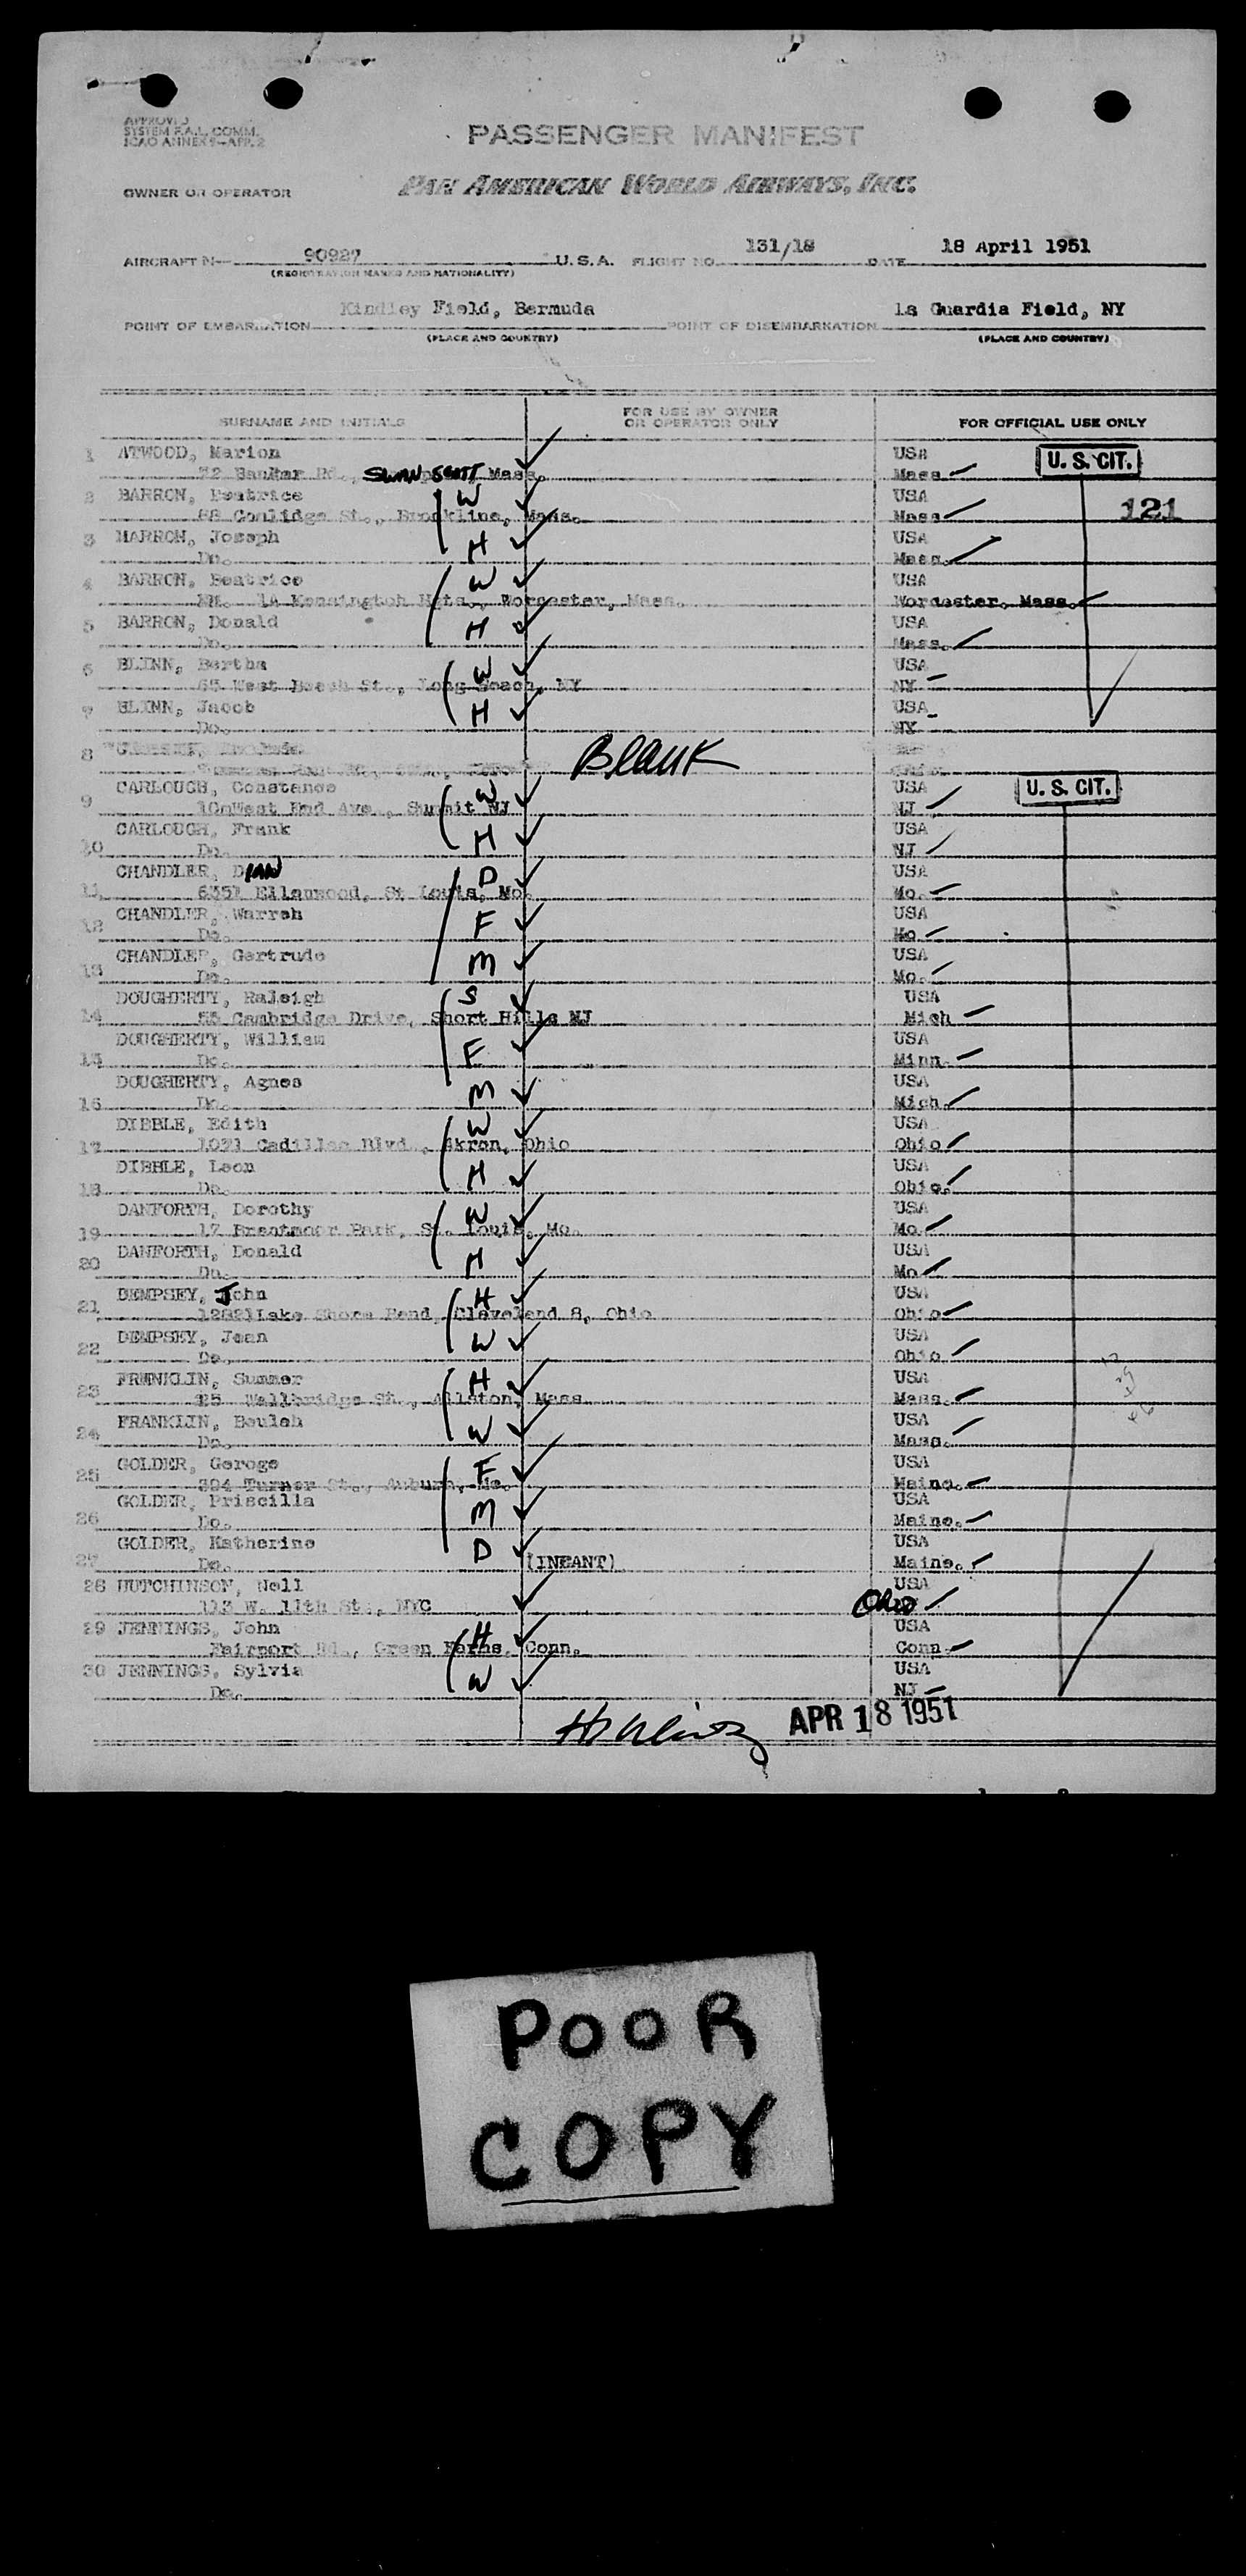 APPROVED
SYSTEM F.A.L. COMM.
ICAO ANNEX 9—APP. 2
PASSENGER MANIFEST
OWNER OR OPERATOR PAN AMERICAN WORLD AIRWAYS, INC.
AIRCRAFT N— 90927 U.S.A. FLIGHT NO. 131/18 DATE 18 April 1951
(REGISTRATION MARKS AND NATIONALITY)
POINT OF EMBARKATION Kindley Field, Bermuda POINT OF DISEMBARKATION La Guardia Field, NY
(PLACE AND COUNTRY) (PLACE AND COUNTRY)
SURNAME AND INITIALS FOR USE BY OWNER OR OPERATOR ONLY FOR OFFICIAL USE ONLY
1 ATWOOD, Marion USA U. S. CIT.
Rd., SWAMPSCOTT Mass. Mass
2 BARRON, Beatrice W USA 121
88 Coolidge St., Brookline, Mass. Mass
3 BARRON, Joseph H USA
Do. Mass.
4 BARRON, Beatrice W USA
1A Kensington Hgts., Worcester, Mass. Worcester, Mass.
5 BARRON, Donald H USA
Do. Mass.
6 BLINN, Bertha W USA
65 West Beech St., Long Beach, NY NY
7 BLINN, Jacob H USA
Do. NY
8 Blank
9 CARLOUGH, Constance W USA U. S. CIT.
10 West End Ave., Summit NJ NJ
CARLOUGH, Frank H USA
10 Do. NJ
CHANDLER, D USA
11 6351 Ellenwood, St Louis, Mo. Mo.
12 CHANDLER, Warren F USA
Do. Mo
CHANDLER, Gertrude M USA
13 Do. Mo.
DOUGHERTY, Raleigh S USA
14 55 Cambridge Drive, Short Hills NJ Mich
DOUGHERTY, William F USA
15 Do. Minn.
DOUGHERTY, Agnes M USA
16 Do. Mich.
DIBBLE, Edith W USA
17 1071 Cadillac Blvd., Akron, Ohio Ohio
DIBBLE, Leon H USA
18 Do. Ohio.
DANFORTH, Dorothy W USA
19 17 Brentmoor Park, St. Louis, Mo. Mo.
DANFORTH, Donald H USA
20 Do. Mo
DEMPSEY, John H USA
21 Lake Shore Cleveland 8, Ohio Ohio
DEMPSEY, Jean W USA
22 Do. Ohio
23 FRANKLIN, Sumner H USA
25 Wallbridge St., Allston, Mass. Mass.
24 FRANKLIN, Beulah W USA
Do. Mass.
25 GOLDER, Geroge F USA
394 Turner St., Auburn, Me. Maine.
26 GOLDER, Priscilla M USA
Do. Maine.
GOLDER, Katherine D USA
27 Do. (INFANT) Maine.
28 HUTCHINSON, Nell USA
113 W. 11th St., NYC Ohio
29 JENNINGS, John H USA
Fairport Rd., Green Farms, Conn. Conn.
30 JENNINGS, Sylvia W USA
Do. NJ
APR 18 1951
POOR
COPY